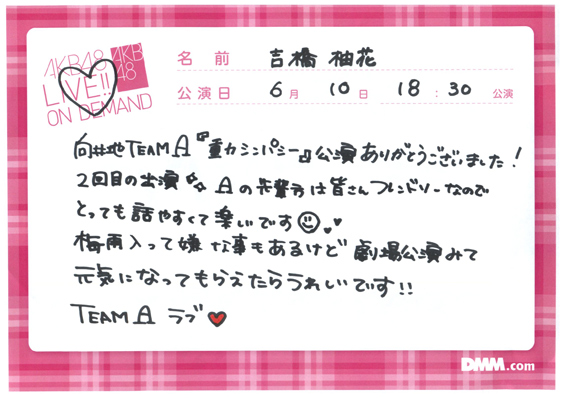 AKB48
LIVE!!
ON DEMAND
AKB
48
名前 吉橋 柚花
公演日 6月 10日 18:30 公演
向井地TEAM A『重力シンパシー』公演ありがとうございました!
2回目の出演 Aの先輩方は皆さんフレンドリーなので
とっても話やすくて楽しいです
梅雨入って嫌な事もあるけど 劇場公演みて
元気になってもらえたらうれしいです!!
TEAM A ラブ
DMM.com